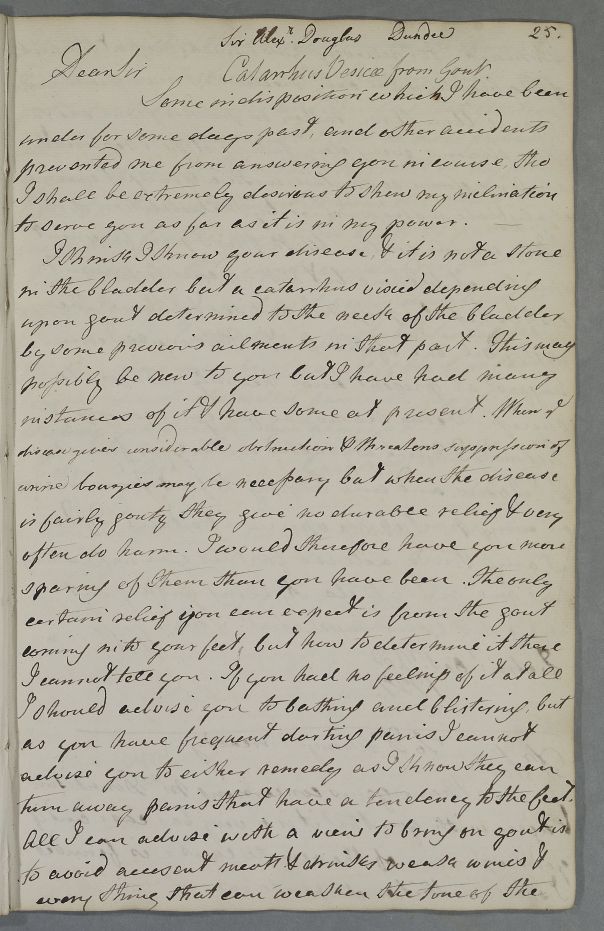 Sir Alexr. Douglas Dundee 25.
Dear Sir Catarrhus Vesicæ from Gout
Some indisposition which I have been
under for some days past, and other accidents
prevented me from answering you in course, tho
I shall be extremely desirous to shew my inclination
to serve you as far as it is in my power. —
I think I know your disease, & it is not a Stone
in the bladder but a catarrhus depending
upon gout determined to the neck of the bladder
by some previous ailments in that part. This may
possibly be new to you but I have had many
instances of it & have some at present. When ye
disease gives considerable obstruction & threatens suppression of
urine bougies may be necessary but when the disease
is fairly gouty they give no durable relief & very
often do harm. I would therefore have you more
sparing of them than you have been. The only
certain relief you can expect is from the gout
coming into your feet, but how to determine it there
I cannot tell you. If you had no feelings of it at all
I should advise you to bathing and blistering, but
as you have frequent darting pains I cannot
advise you to either remedy as I know they can
turn away pains that have a tendency to the feet.
All I can advise with a view to bring on gout is
to avoid meats & drinks weak wines &
every thing that can weaken the tone of the